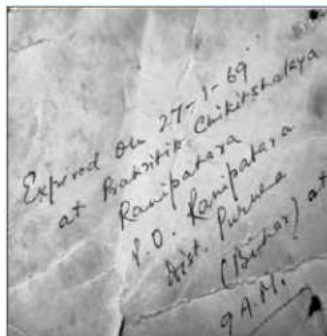 Expired on 27-1-69
at Prakritik Chikitshalaya
Ranipatara
P.O. Ranipatara
Dist. Purnea
(Bihar) at
9 A.M.